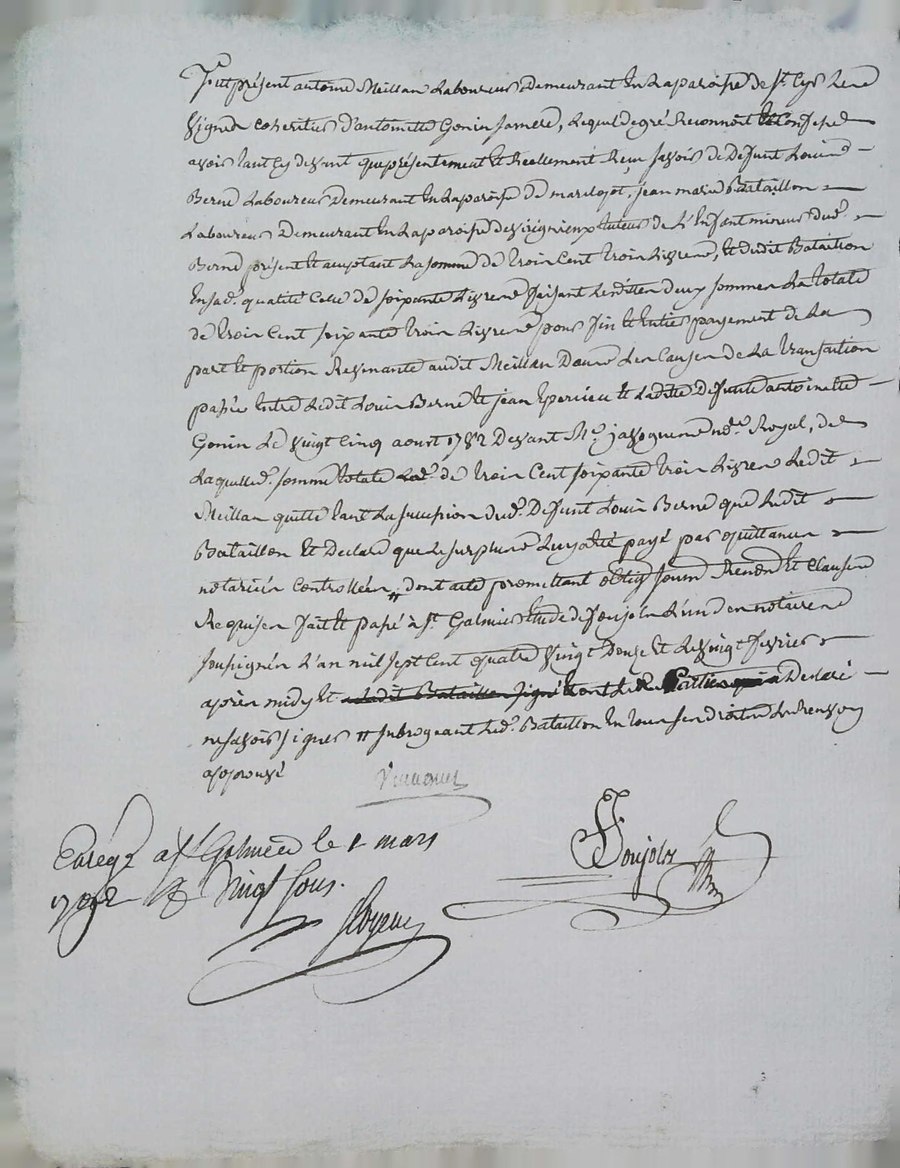 Fut présent antoine Meillan Laboureur Demeurant En Laparoisse de St. Cyr Lene
Vigner coheritier d'antoinette Gonin Samere, Lequel degré Reconnoit Et Confesse
avoir tant Cy devant que présentement Et Reellement Reçu Savoir de Defunt Louis
Berne Laboureur Demeurant En Laparoisse De jean marie Bataillon
Laboureur Demeurant En Laparoisse de tuteur de L'Enfant mineur dud.
Berne présent Et acceptant La somme de trois Cent trois Livres, Et dudit Bataillon
En sad. qualité Celle de soixante Livres faisant Lesdittes deux sommes La totale
de trois Cent soixante trois Livres pour fin Et Entier payement de La
part Et portion Revenante audit Meillan Dans Les Causes de La transaction
passée Entre Ledit Louis Berne Et jean Epercieu Et Laditte Defunte antoinette
Gonin Le vingt Cinq aoust 1782 Devant Me. no.re Royal, de
Laquelle d. somme totale de trois Cent soixante trois Livres Ledit
Meillan quitte tant La succession dud. Defunt Louis Berne que Ledit
Bataillon Et Declare que Le surplus Luy a été payé par quittances
notariées Controllées, dont acte promettant oblig. soum. Renon. Et Clauses
Requises fait Et passé à St. Galmier Etude de Ponjols L'un des notaires
soussignés L'an mil sept Cent quatre vingt Douze Et Le vingt fevrier
après midy Et Ledit Bataillon signé Parties Declaré
ne savoir signer subrogeant Led. Bataillon En tous ses droits
approuvé
Enregé a St Galmier le 1 mars
1792 R vingt sous.
Ponjols